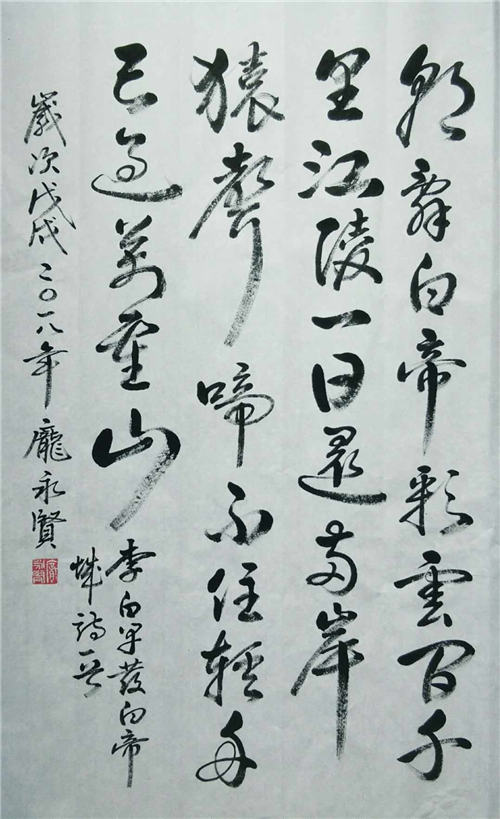 朝辭白帝彩雲間千
里江陵一日還兩岸
猿聲啼不住輕舟
已過萬重山
李白早發白帝
城詩一首
歲次戊戌二〇一八年龐永賢